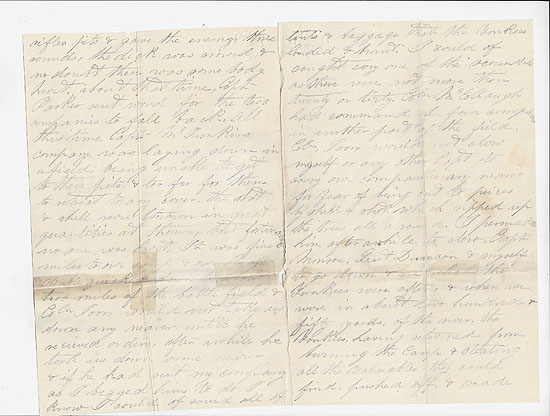 rifles pits & gave the enemy three
rounds, the deck was crowded &
no doubt there was some body
hurt, about this time, Capt
Parker sent word for the two
companies to fall back. All
this time Capt
company was laying down in
a field being unable to get
to their pits & too far for them
to retreat to any cover the shot
& shell were thrown in great
quantities at them, but fortunately
no one was hurt. It was five
miles to our
double quick
two miles of the battle field &
Coln would not take us
down any nearer until he
received orders, after awhile he
took us down some nearer
& if he had sent my company
as I begged him to do I
know I could of saved all of
tents & baggage that the Yankees
loaded & burnt. I could of
caught every one of the scoundrels
as there were not more than
twenty or thirty. Coln McCullough
had command of your company
in another part of the field.
Coln would not alow
myself or any other Capt to
carry our company any nearer
for fear of being cut to pieces
by shell & shot which ripped up
the trees all around. I persuaded
him after awhile to alow Capt
Monroe, Lieut & myself
to go down & see what the
Yankees were after, & when we
were in about two hundred &
fifty yards, of the river the
Yankees, having returned from
burning the Camp & stealing
all the valuables they could
find, pushed off, & made